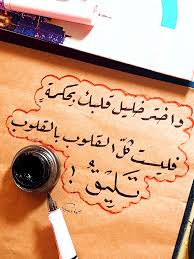 واختر خليل قلبك بحكمةٍ
فليست كلّ القلوب بالقلوب
تليقُ !